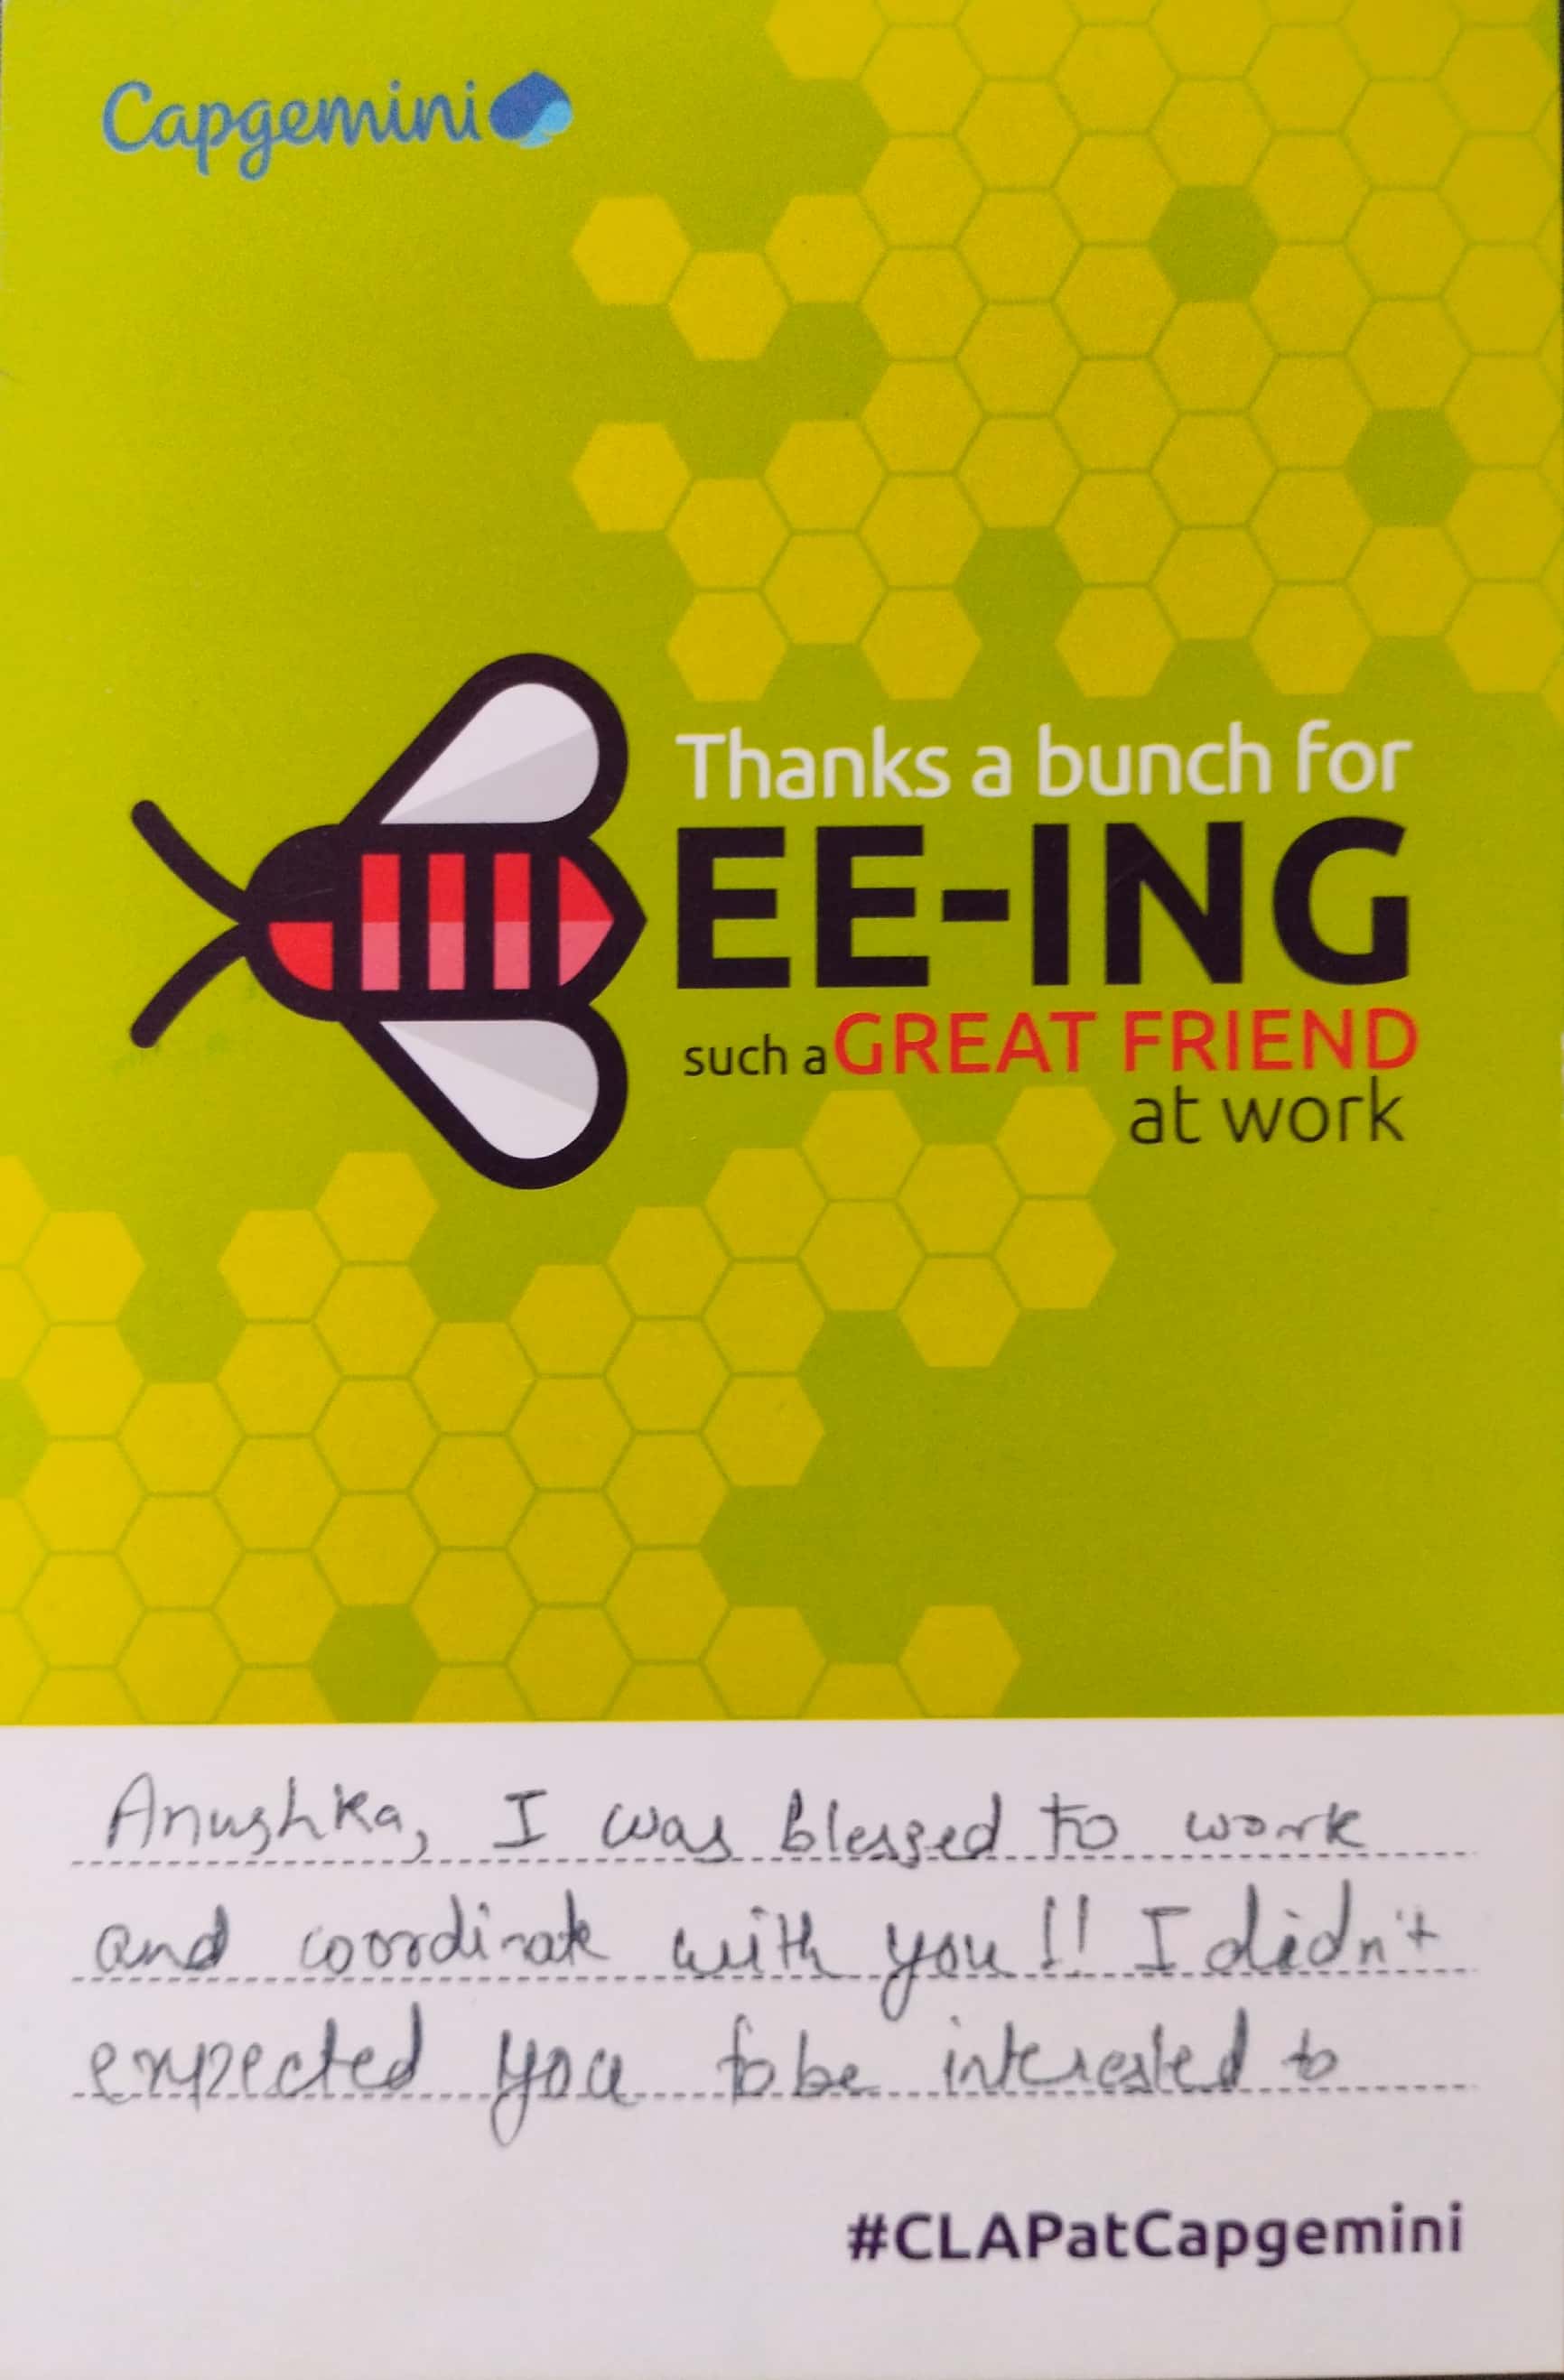 Capgemini
Thanks a bunch for
EE-ING
such a GREAT FRIEND
at work
Anushka, I was blessed to work
and coordinate with you!! I didn't
expected you to be interested to
#CLAPatCapgemini